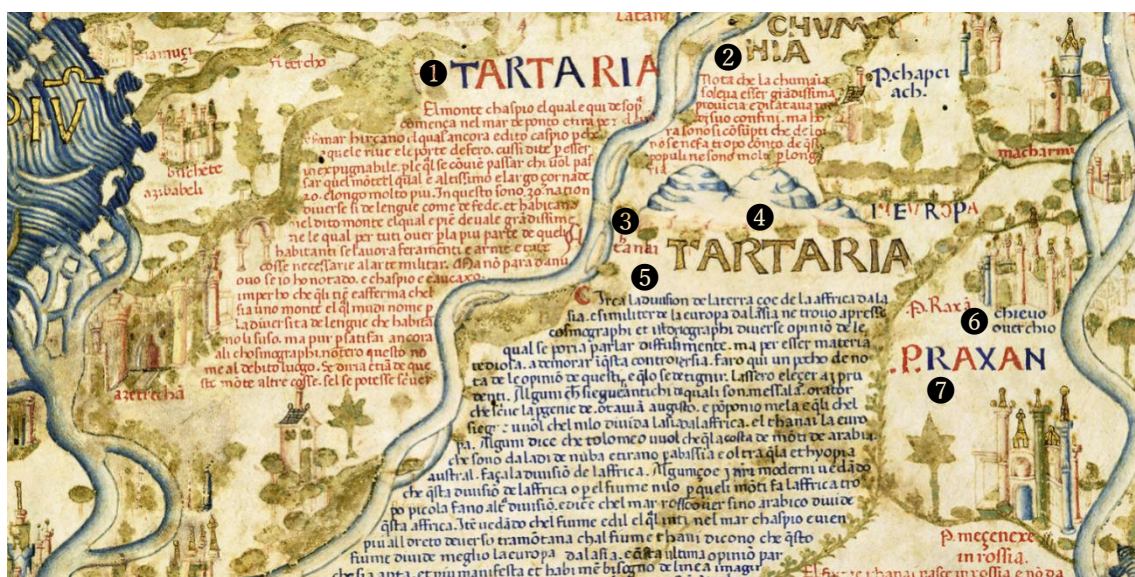 PIV
latan
siamuçi
fi cercho
❶ TARTARIA
❷ CHVMA
NIA
P. chapei
ach.
macharmi
bischete
azibabeli
El monte chaspio el qual e qui de sopra
comença nel mar de ponto e tira per
mar hircano el qual ancora e dito caspio p che
quele riue e le porte de fero. cussi dite p esser
inexpugnabile. p le qual se coviē passar chi uol pas
sar quel monte el qual e altissimo e largo çornade
20. e longo molto piu. In questo sono .30. nation
diuerse si de lengue come de fede. et habitano
nel dito monte el qual e piē de uale grādissime
ne le qual per tuti ouer p la piu parte de queli
habitanti se lavora feramenti e arme e tute
cosse necessarie al arte militar. Ma nō para danu
ouo se io ho notado. e chaspio e caucaxo
imperho che qli tiē e afferma chel
sia uno monte el ql mudi nome p
la diuersita de lengue che habita
no li suso. ma pur p satisfar ancora
ali chosmographi. notero questo no
me al debito luogo. Se diria etiā de que
sto mōte altre cosse. sel se potesse scriuer
azetrechā
Nota che la chumāia
soleua esser grādissima
prouicia e dilataua
i suo confini. ma ho
ra sono si cōsupti che de lor
nō se ne fa tropo conto. de qsti
populi ne sono molti p longi
❸ tanai
❹
IN EVROPA
TARTARIA
❺
Circa la diuision de la terra çoe de la affrica da la
sia. e similiter de la europa da lasia ne trouo apresso
cosmographi et istoriographi diuerse opiniō de le
qual se poria parlar diffusamente. ma per esser materia
tediosa. a demorar ī qsta controuersia. faro qui un pocho de no
ta de le opiniō de questi. e qlo se de tignir. lassero eleçer a i pru
denti. Algumi chi siegue antichi di quali son messala. orator
che scriue la pgenie de .otauiā augusto. e pōponio mela e qli chel
siegue uuol chel nilo diuida lasia da laffrica. e l thanai la euro
pa. Algumi dice che tolomeo uuol che qla costa de mōti de arabia.
che sono da ladi de nuba e tirano p abassia e oltra qla ethyopia
austral. faça la diuisiō de laffrica. Algumi çoe i piu moderni uedādo
che qsta diuisiō de laffrica o p el fiume nilo o p queli mōti fa laffrica tro
po picola fano altra diuisiō. e dice chel mar rosso ouer sino arabico diuide
qsta affrica. Ite uedādo chel fiume edil el ql intra nel mar chaspio e uien
piu al dreto de uerso tramōtana chal fiume thani dicono che qsto
fiume diuide meglio la europa da lasia. e qsta ultima opiniō par
che sia apta. et piu manifesta et habi mē bisogno de linea imagi
P. Raxā
❻ chieuo
ouer chio
P. RRAXAN
❼
P. meçenexe
in rossia.
El fiume thanai nasce in rossia e nō da